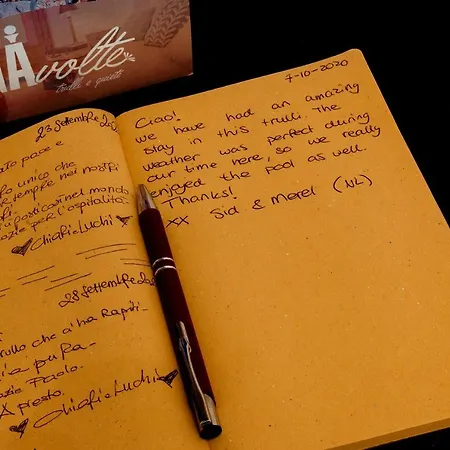 volte
trulli e quieti
23 Settembre 20
pace e
unico che
sempre nei nostri
nel mondo
per l'ospitalità
Chiafi e Luchi
28 Settembre 20
che ci ha rapiti
pura
Paolo.
A presto.
Chiafi e Luchi
7-10-2020
Ciao!
we have had an amazing
stay in this trulli. The
weather was perfect during
our time here, so we really
enjoyed the pool as well.
Thanks!
xx Sid & Merel (NL)